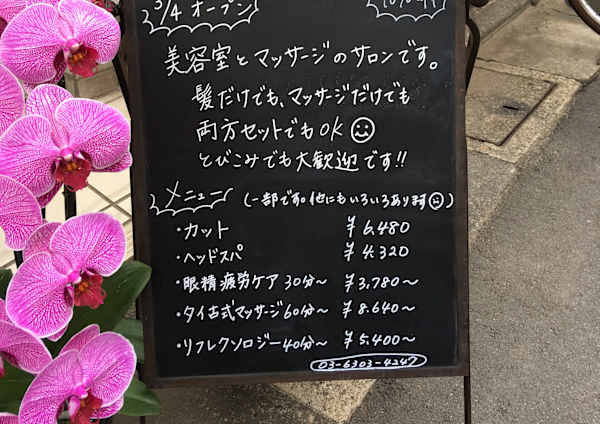 3/4 オープン
美容室とマッサージのサロンです。
髪だけでも、マッサージだけでも
両方セットでもOK
とびこみでも大歓迎です!!
メニュー (一部です。他にもいろいろあります)
・カット ¥6,480
・ヘッドスパ ¥4,320
・眼精疲労ケア 30分〜 ¥3,780〜
・タイ古式マッサージ60分〜 ¥8,640〜
・リフレクソロジー40分〜 ¥5,400〜
03-6303-4247